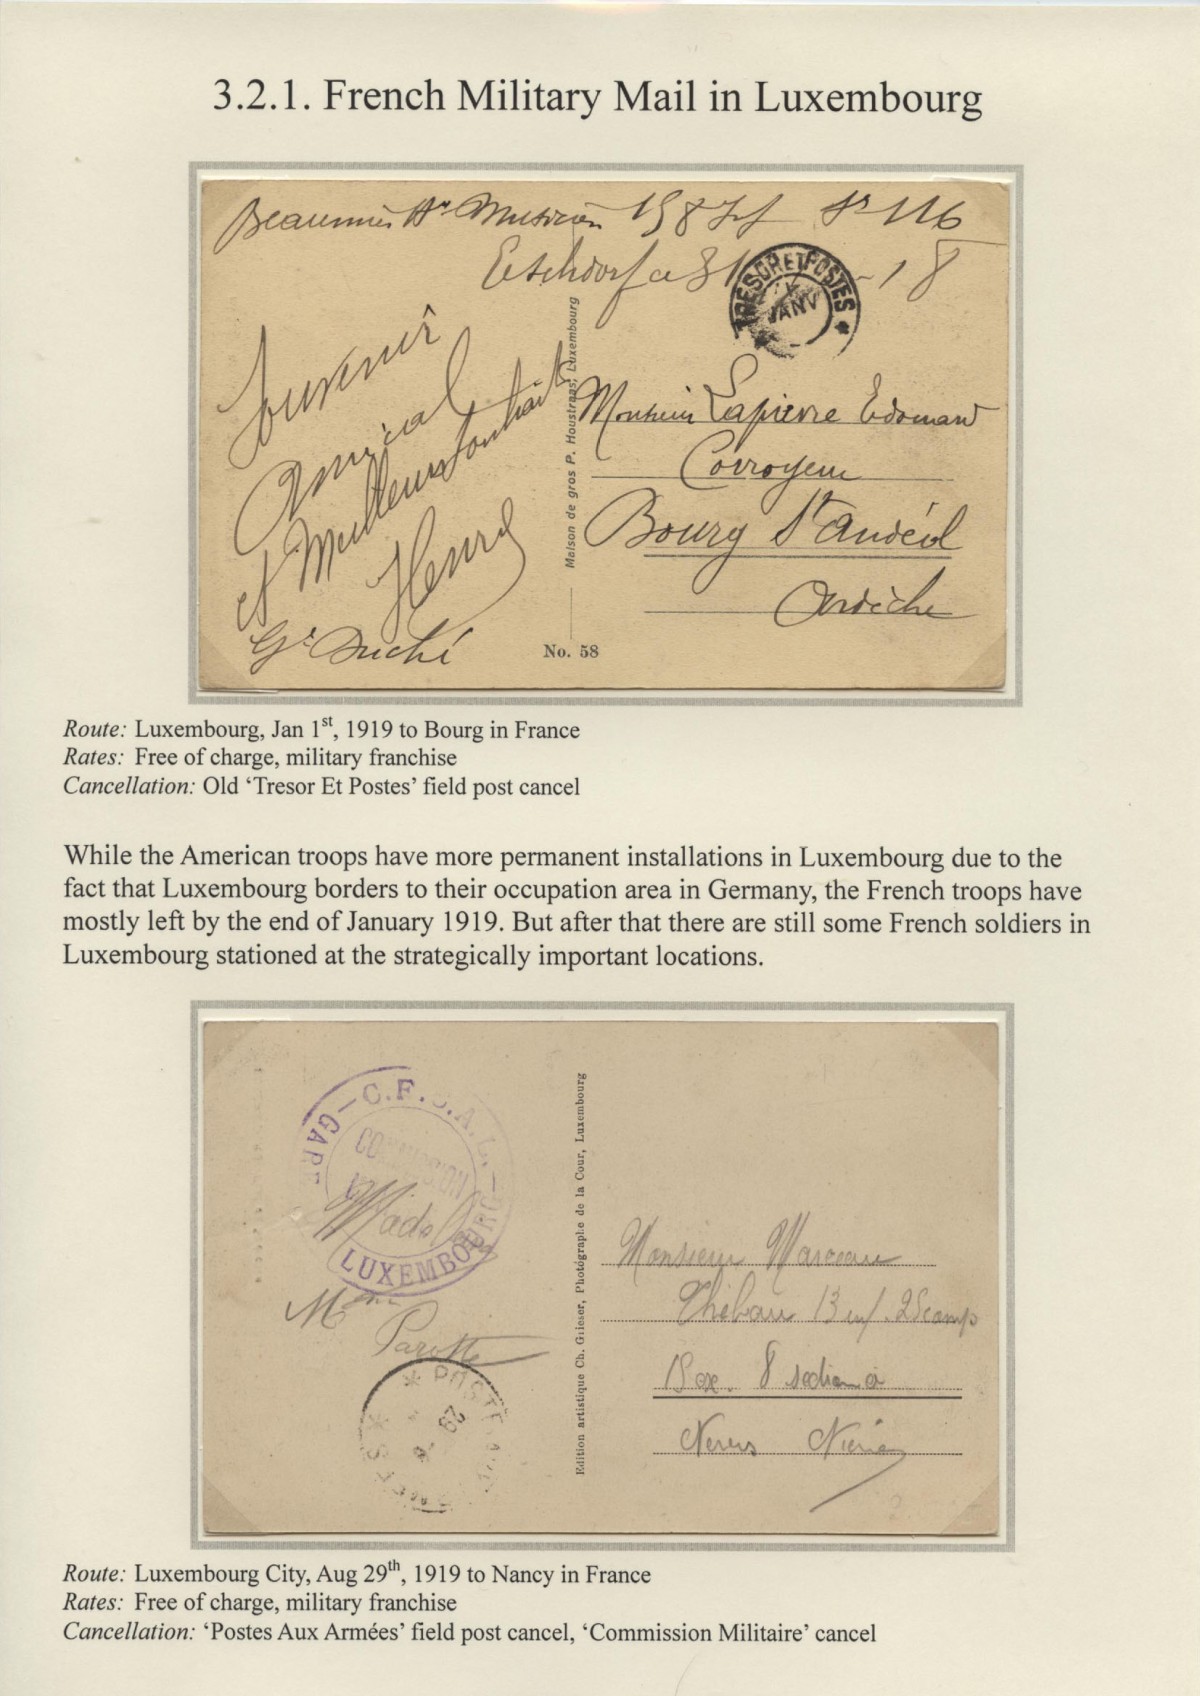 3.2.1. French Military Mail in Luxembourg
Musicien 158 116
Eschdorf
TRESOR ET POSTES *
JANV
Souvenir
Amical
et Meilleurs Souhaits
Henri
Gd Duché
Maison de gros P. Houstraas, Luxembourg
No. 58
Monsieur Lapierre Edouard
Corroyeur
Bourg St Andéol
Ardèche
Route: Luxembourg, Jan 1st, 1919 to Bourg in France
Rates: Free of charge, military franchise
Cancellation: Old ‘Tresor Et Postes’ field post cancel
While the American troops have more permanent installations in Luxembourg due to the
fact that Luxembourg borders to their occupation area in Germany, the French troops have
mostly left by the end of January 1919. But after that there are still some French soldiers in
Luxembourg stationed at the strategically important locations.
GARE – C.F. A.L. –
COMMISSION
LUXEMBOURG
* POSTE
29
Edition artistique Ch. Grieser, Photographe de la Cour, Luxembourg
Monsieur Marceau
13
8
Nevers
Route: Luxembourg City, Aug 29th, 1919 to Nancy in France
Rates: Free of charge, military franchise
Cancellation: ‘Postes Aux Armées’ field post cancel, ‘Commission Militaire’ cancel